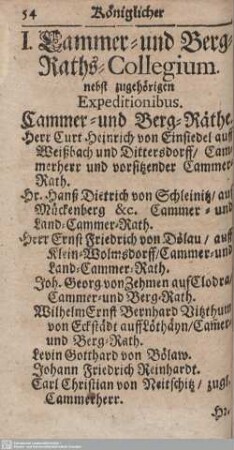 54 Königlicher
I. Cammer-und Berg-
Raths-Collegium.
nebst zugehörigen
Expeditionibus.
Cammer-und Berg-Räthe.
Herr Curt Heinrich von Einsiedel auff
Weißbach und Dittersdorff/ Cam-
merherr und vorsitzender Cammer-
Rath.
Hr. Hanß Dietrich von Schleinitz/ auf
Mückenberg &c. Cammer-und
Land-Cammer-Rath.
Herr Ernst Friedrich von Dölau/ auff
Klein-Wolmsdorff/Cammer-und
Land-Cammer-Rath.
Joh. Georg von Zehmen auf Clodra/
Cammer-und Berg-Rath.
Wilhelm Ernst Bernhard Vitzthum
von Eckstädt auff Löthäyn/Cam̃er-
und Berg-Rath.
Levin Gotthard von Bölaw.
Johann Friedrich Reinhardt.
Carl Christian von Neitschitz/ zugl.
Cammerherr.
Hr.